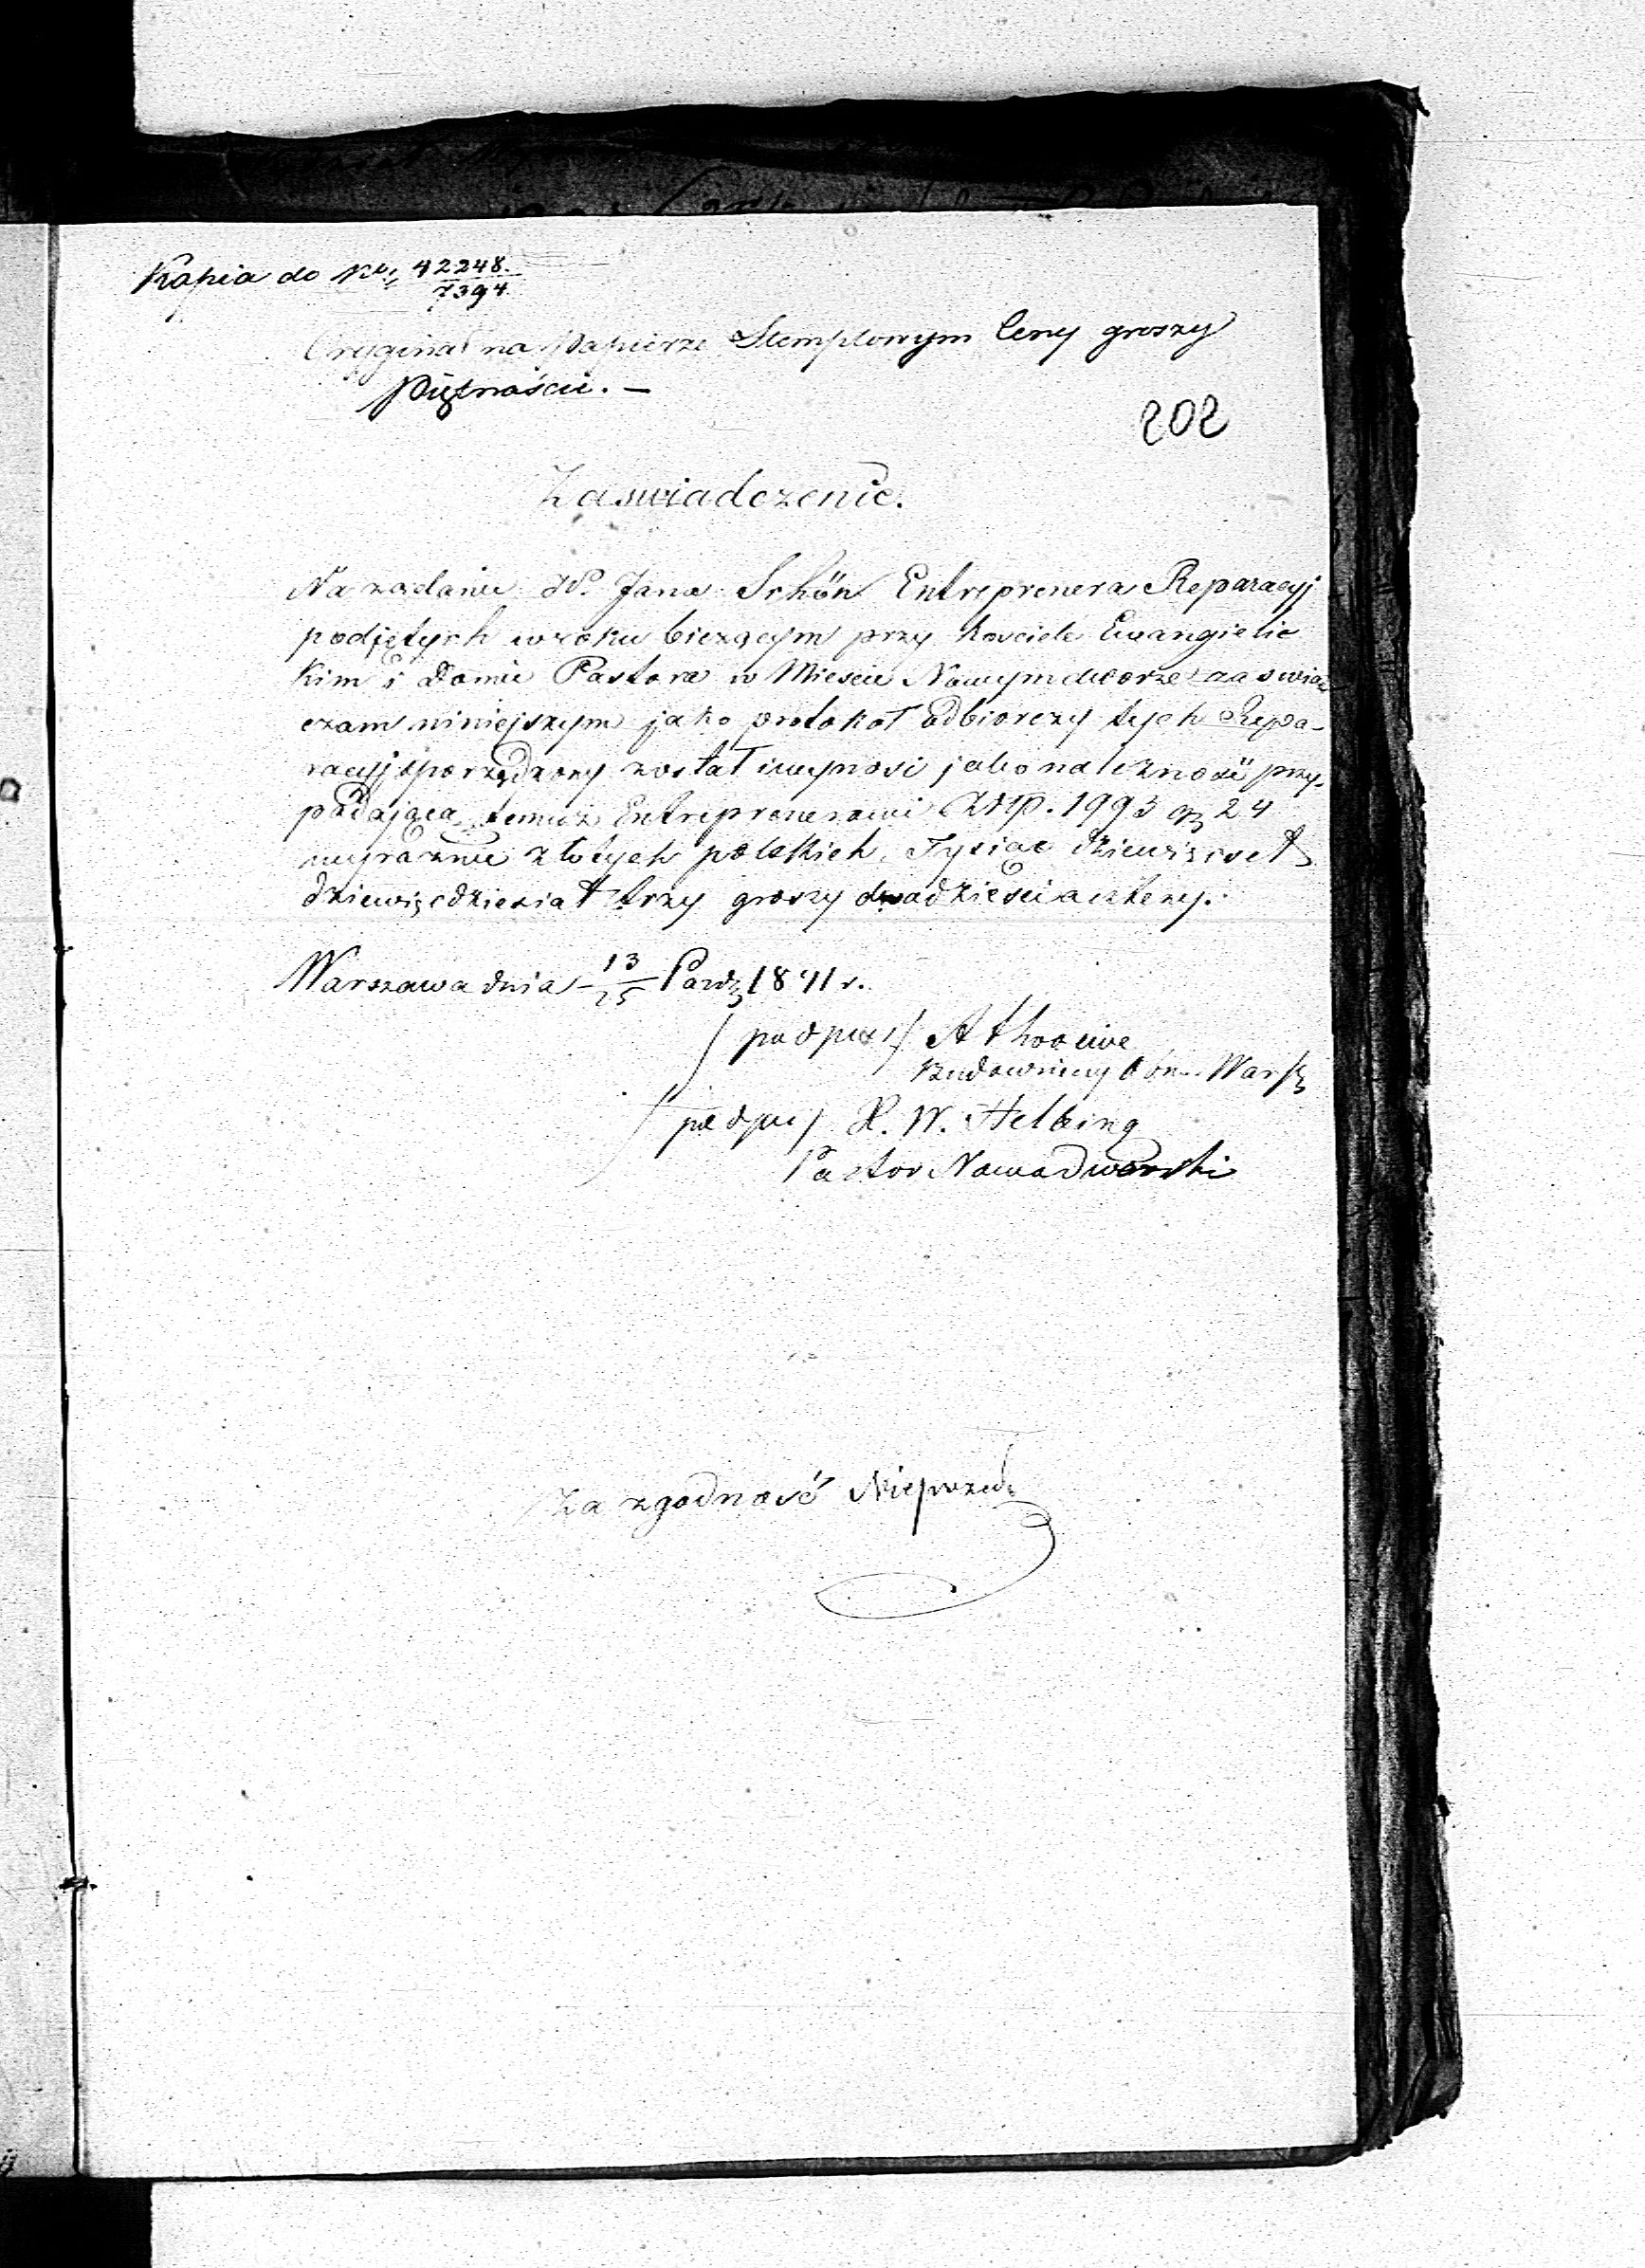 Kopia do Nru 42248.
7394.
Oryginał na Papierze Stemplowym Ceny groszy
Piętnaście. —
202
Zaswiadczenie.
Na żądanie W. Jana Schön Entreprenera Reparacyj
podjętych w roku bieżącym przy Kosciele Ewangielic
kim i Domie Pastora w Miescie Nowymdworze zaswiad
czam niniejszym jako protokoł odbiorczy tych Repa-
racyj sporządzony został i wynosi jako należność przy-
padająca temuż Entreprenerowi Złtp. 1993 gr 24
wyraznie złotych polskich Tysiąc dziewięcset
dziewięcdziesiat trzy groszy dwadziescia cztery.
Warszawa dnia 13/25 Pazdz 1841 r.
(podpis)
Budowniczy Obw. Warsz
(podpis) K. W. Helbing
Pastor Nowodworski
Za zgodność